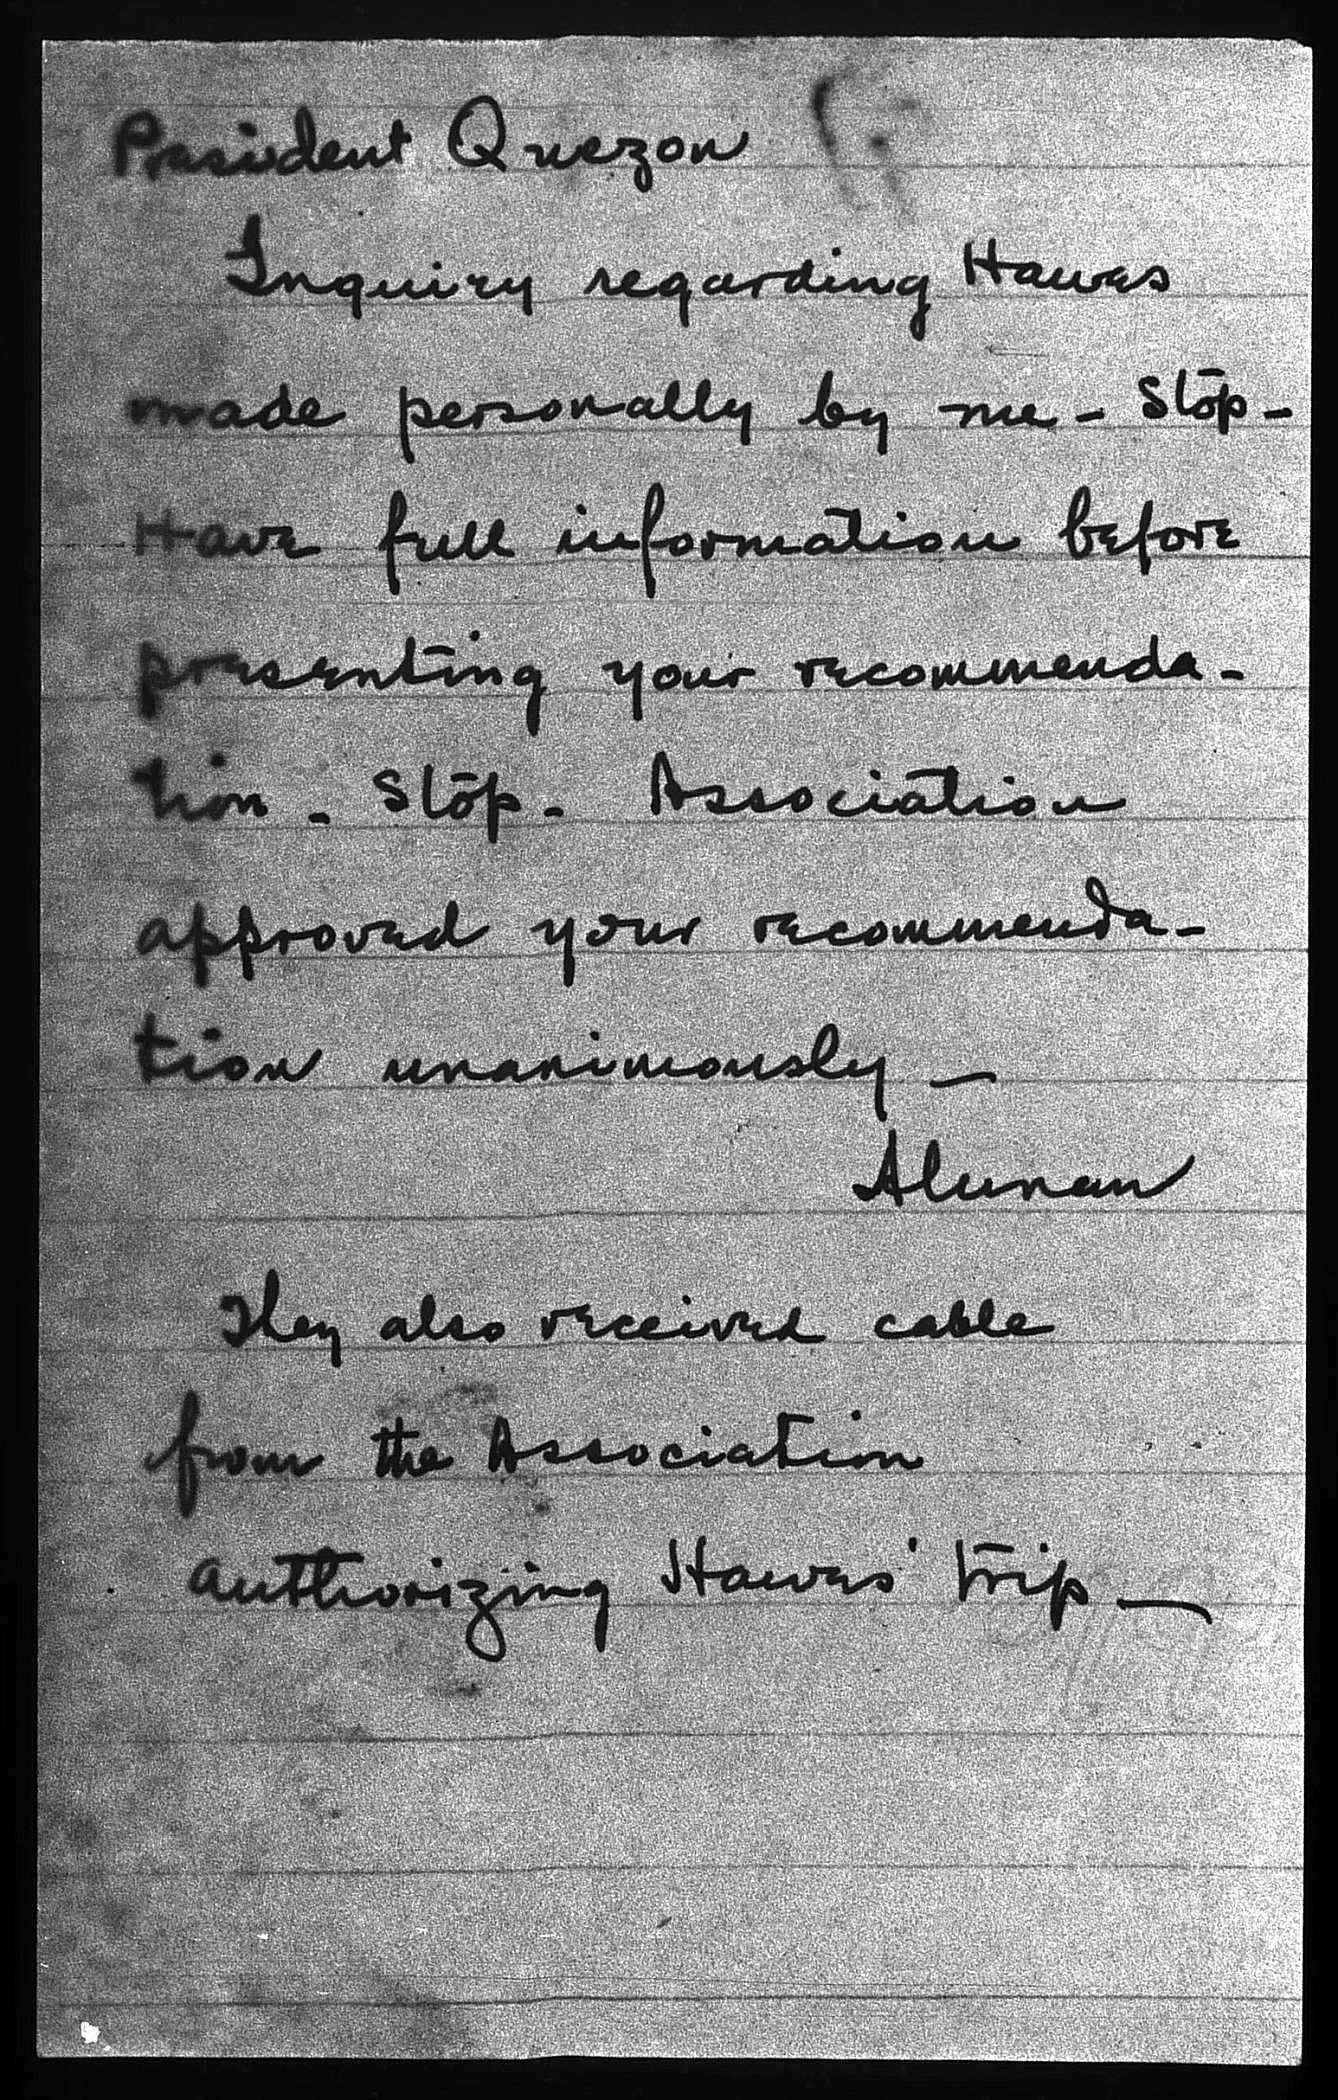 President Quezon
Inquiry regarding Hawes
made personally by me - Stop -
Have full information before
presenting your recommenda-
tion - Stop - Association
approved your recommenda-
tion unanimously -
Alunan
They also received cable
from the Association
authorizing Hawes' trip -